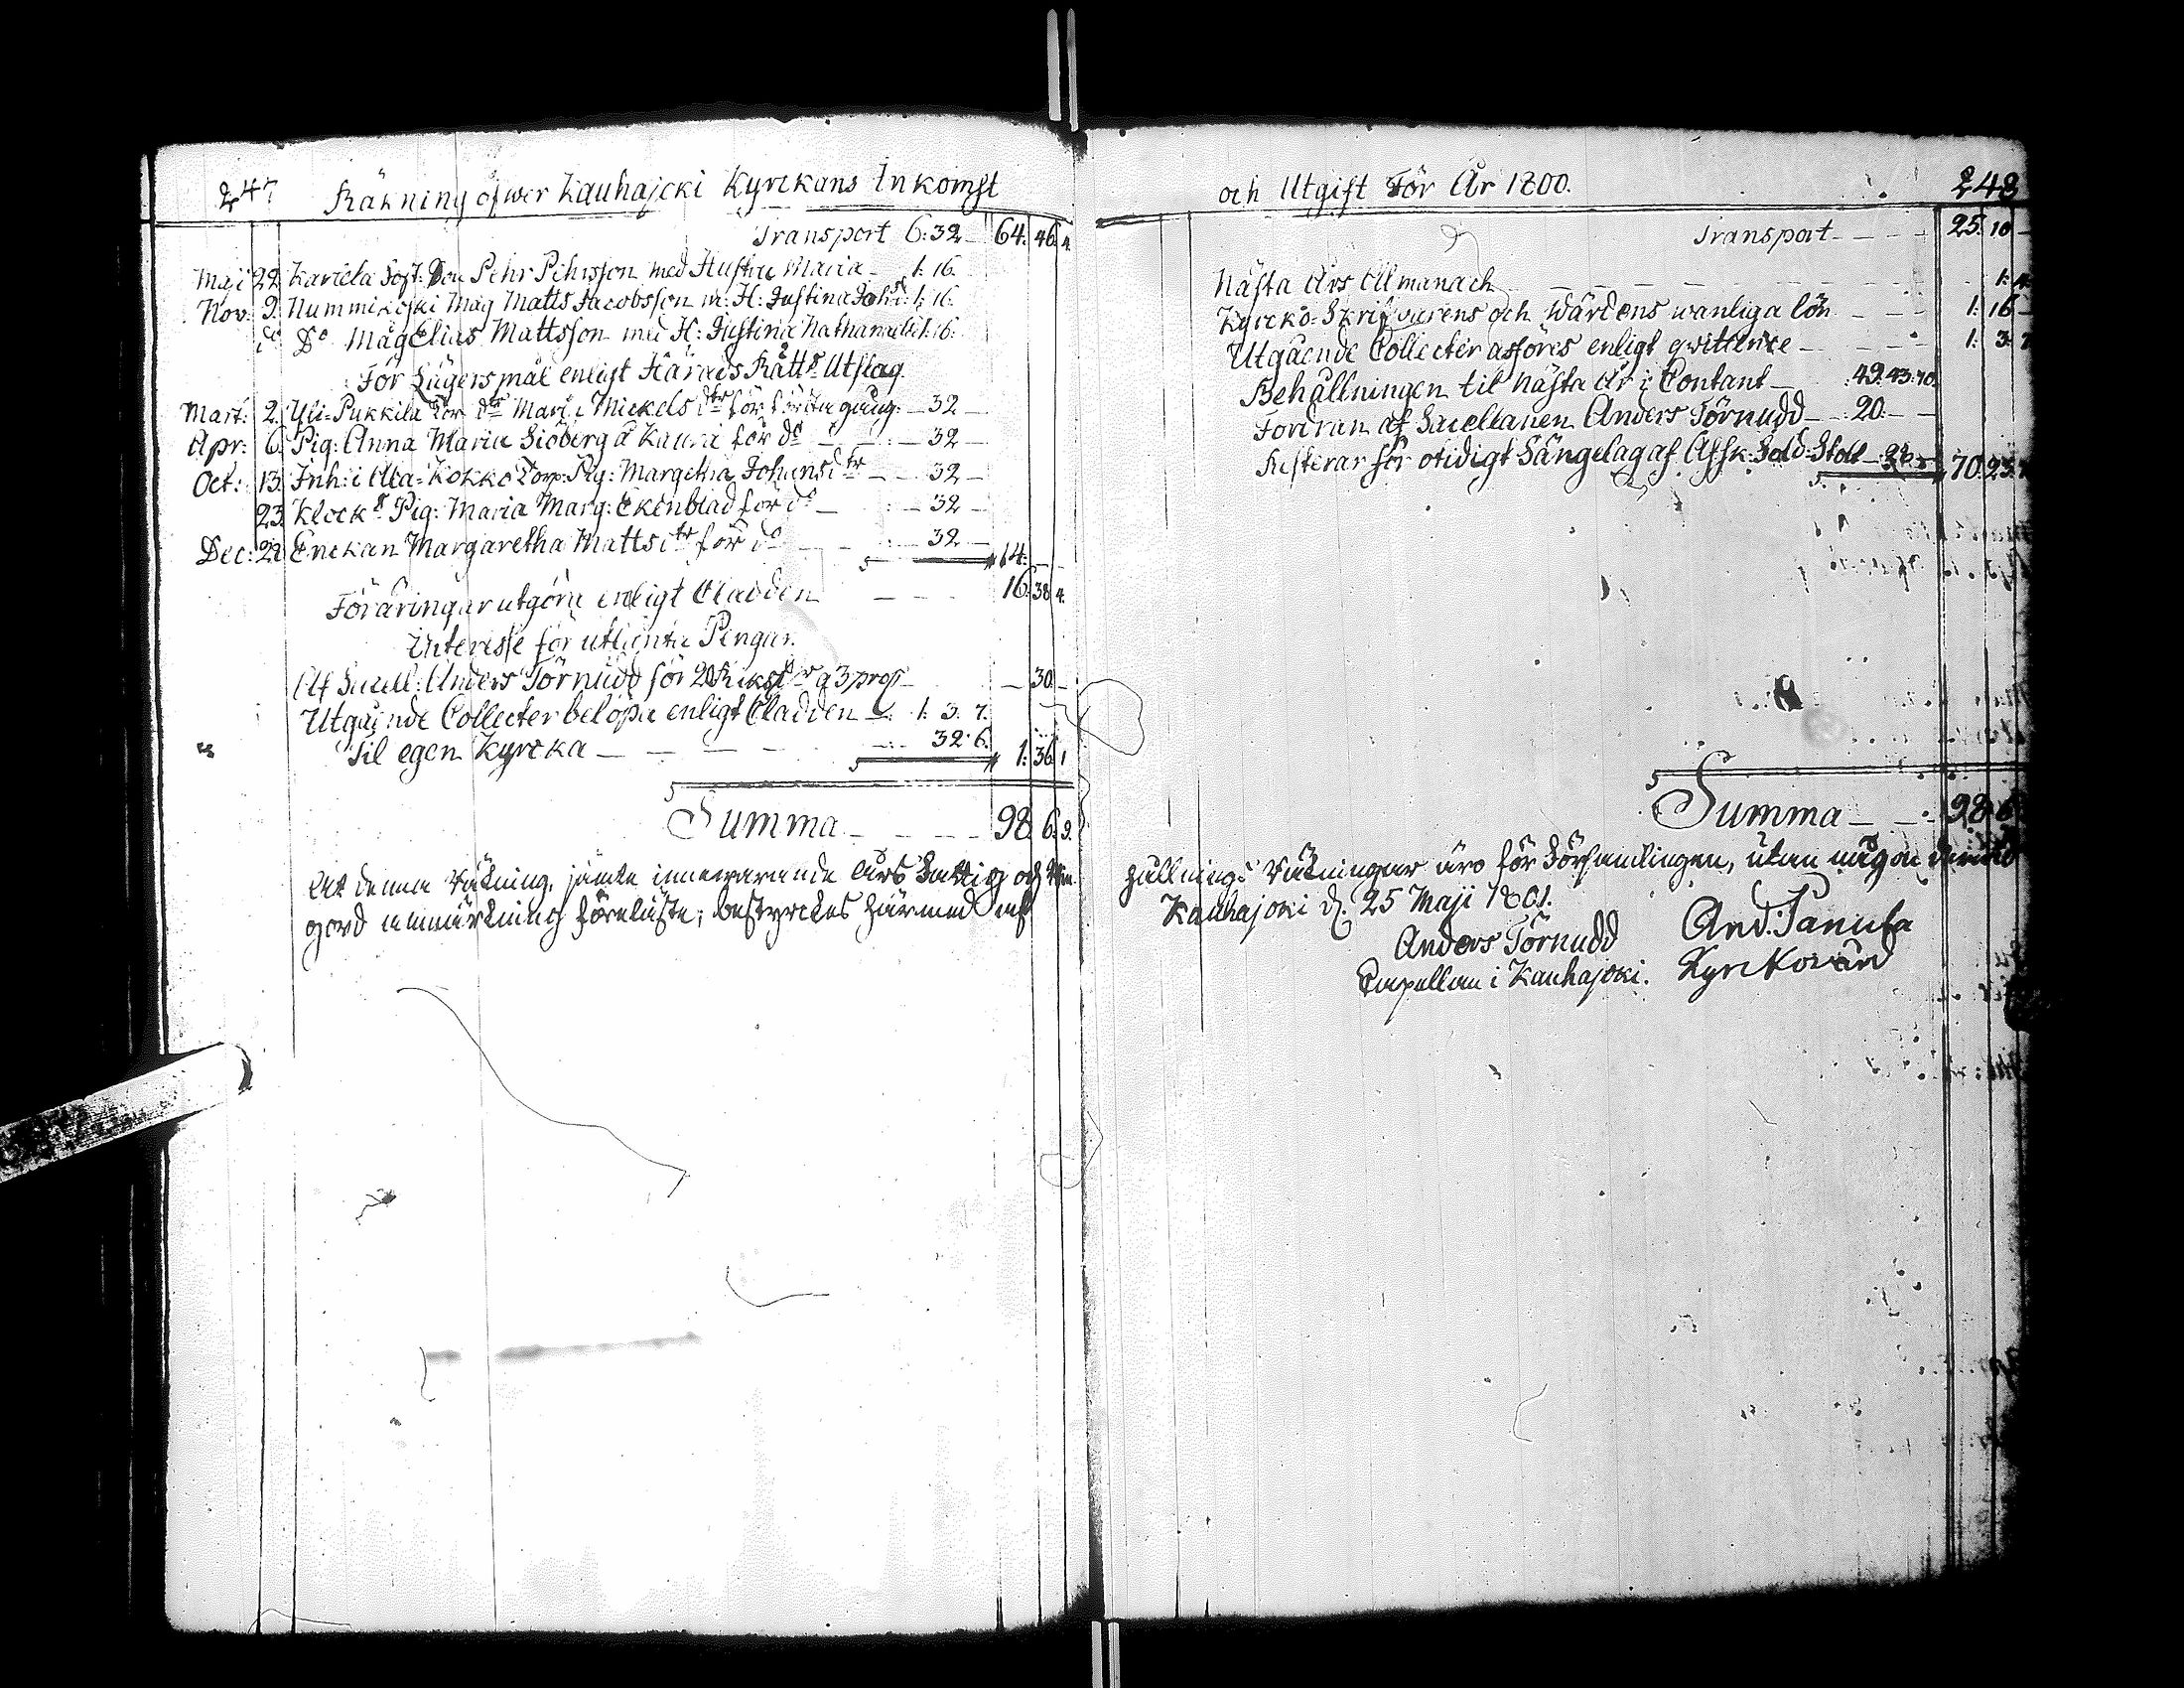 247 Räkning öfwer Kauhajoki Kyrckans Inkomst
Transport 6:32 64. 46. 4.
Maji 22 Kariela Son Pehr Pehrsson med Hustru Maria 1:16.
Nov: 9. Nummikoski Måg Matts Jacobsson m: H: Justina Joh: 1:16.
do Do Måg Elias Mattsson med H: Justina Nathanaels 1:16.
För Lägersmål enligt Härads Rätts Utslag.
Mart: 2. Yli-Pukkila dr Maria Mickels dtr för första gång. 32
Apr: 6. Pig: Anna Maria Siöberg å Kaura för do 32
Oct: 13. Inh: i Ala-Kokko Torp: Pig: Margetha Johans dtr 32
23. Klocks Pig: Maria Marg: Ekenblad för do 32
Dec: 21 Enckan Margaretha Matts dtr för do 32 14.
Föräringar utgöra enligt Cladden 16. 38 4.
Interesse för utlänta Pengar.
Af Sacell: Anders Törnudd för 20 Riksdr a 3 proc 30
Utgående Collecter belöpa enligt Cladden 1. 3. 7.
Til egen Kyrcka 32. 6. 1. 36 1
Summa 98. 6. 9.
At denna Räkning, jämte innewarande års Fattig och
gord anmärkning föreläste; bestyrckes härmed
och Utgift För År 1800. 248
Transport 25. 10
Nästa Års Almanach 1. 4
Kyrcko-Skrifwarens och Wärdens wanliga lön 1. 16
Utgående Collecter afföres enligt qwittence 1. 3. 7
Behållningen til nästa år i Contant 49. 43. 10.
Fordran af Sacellanen Anders Törnudd 20.
Resterar för otidigt Sängelag af Afsk: Sold: Stoll 32 70. 25.
Summa 98. 6
hållnings Räkningar äro för Församlingen, utan någon
Kauhajoki d. 25 Maji 1801.
Anders Törnudd And: Panula
Capellan i Kauhajoki. Kyrckovärd